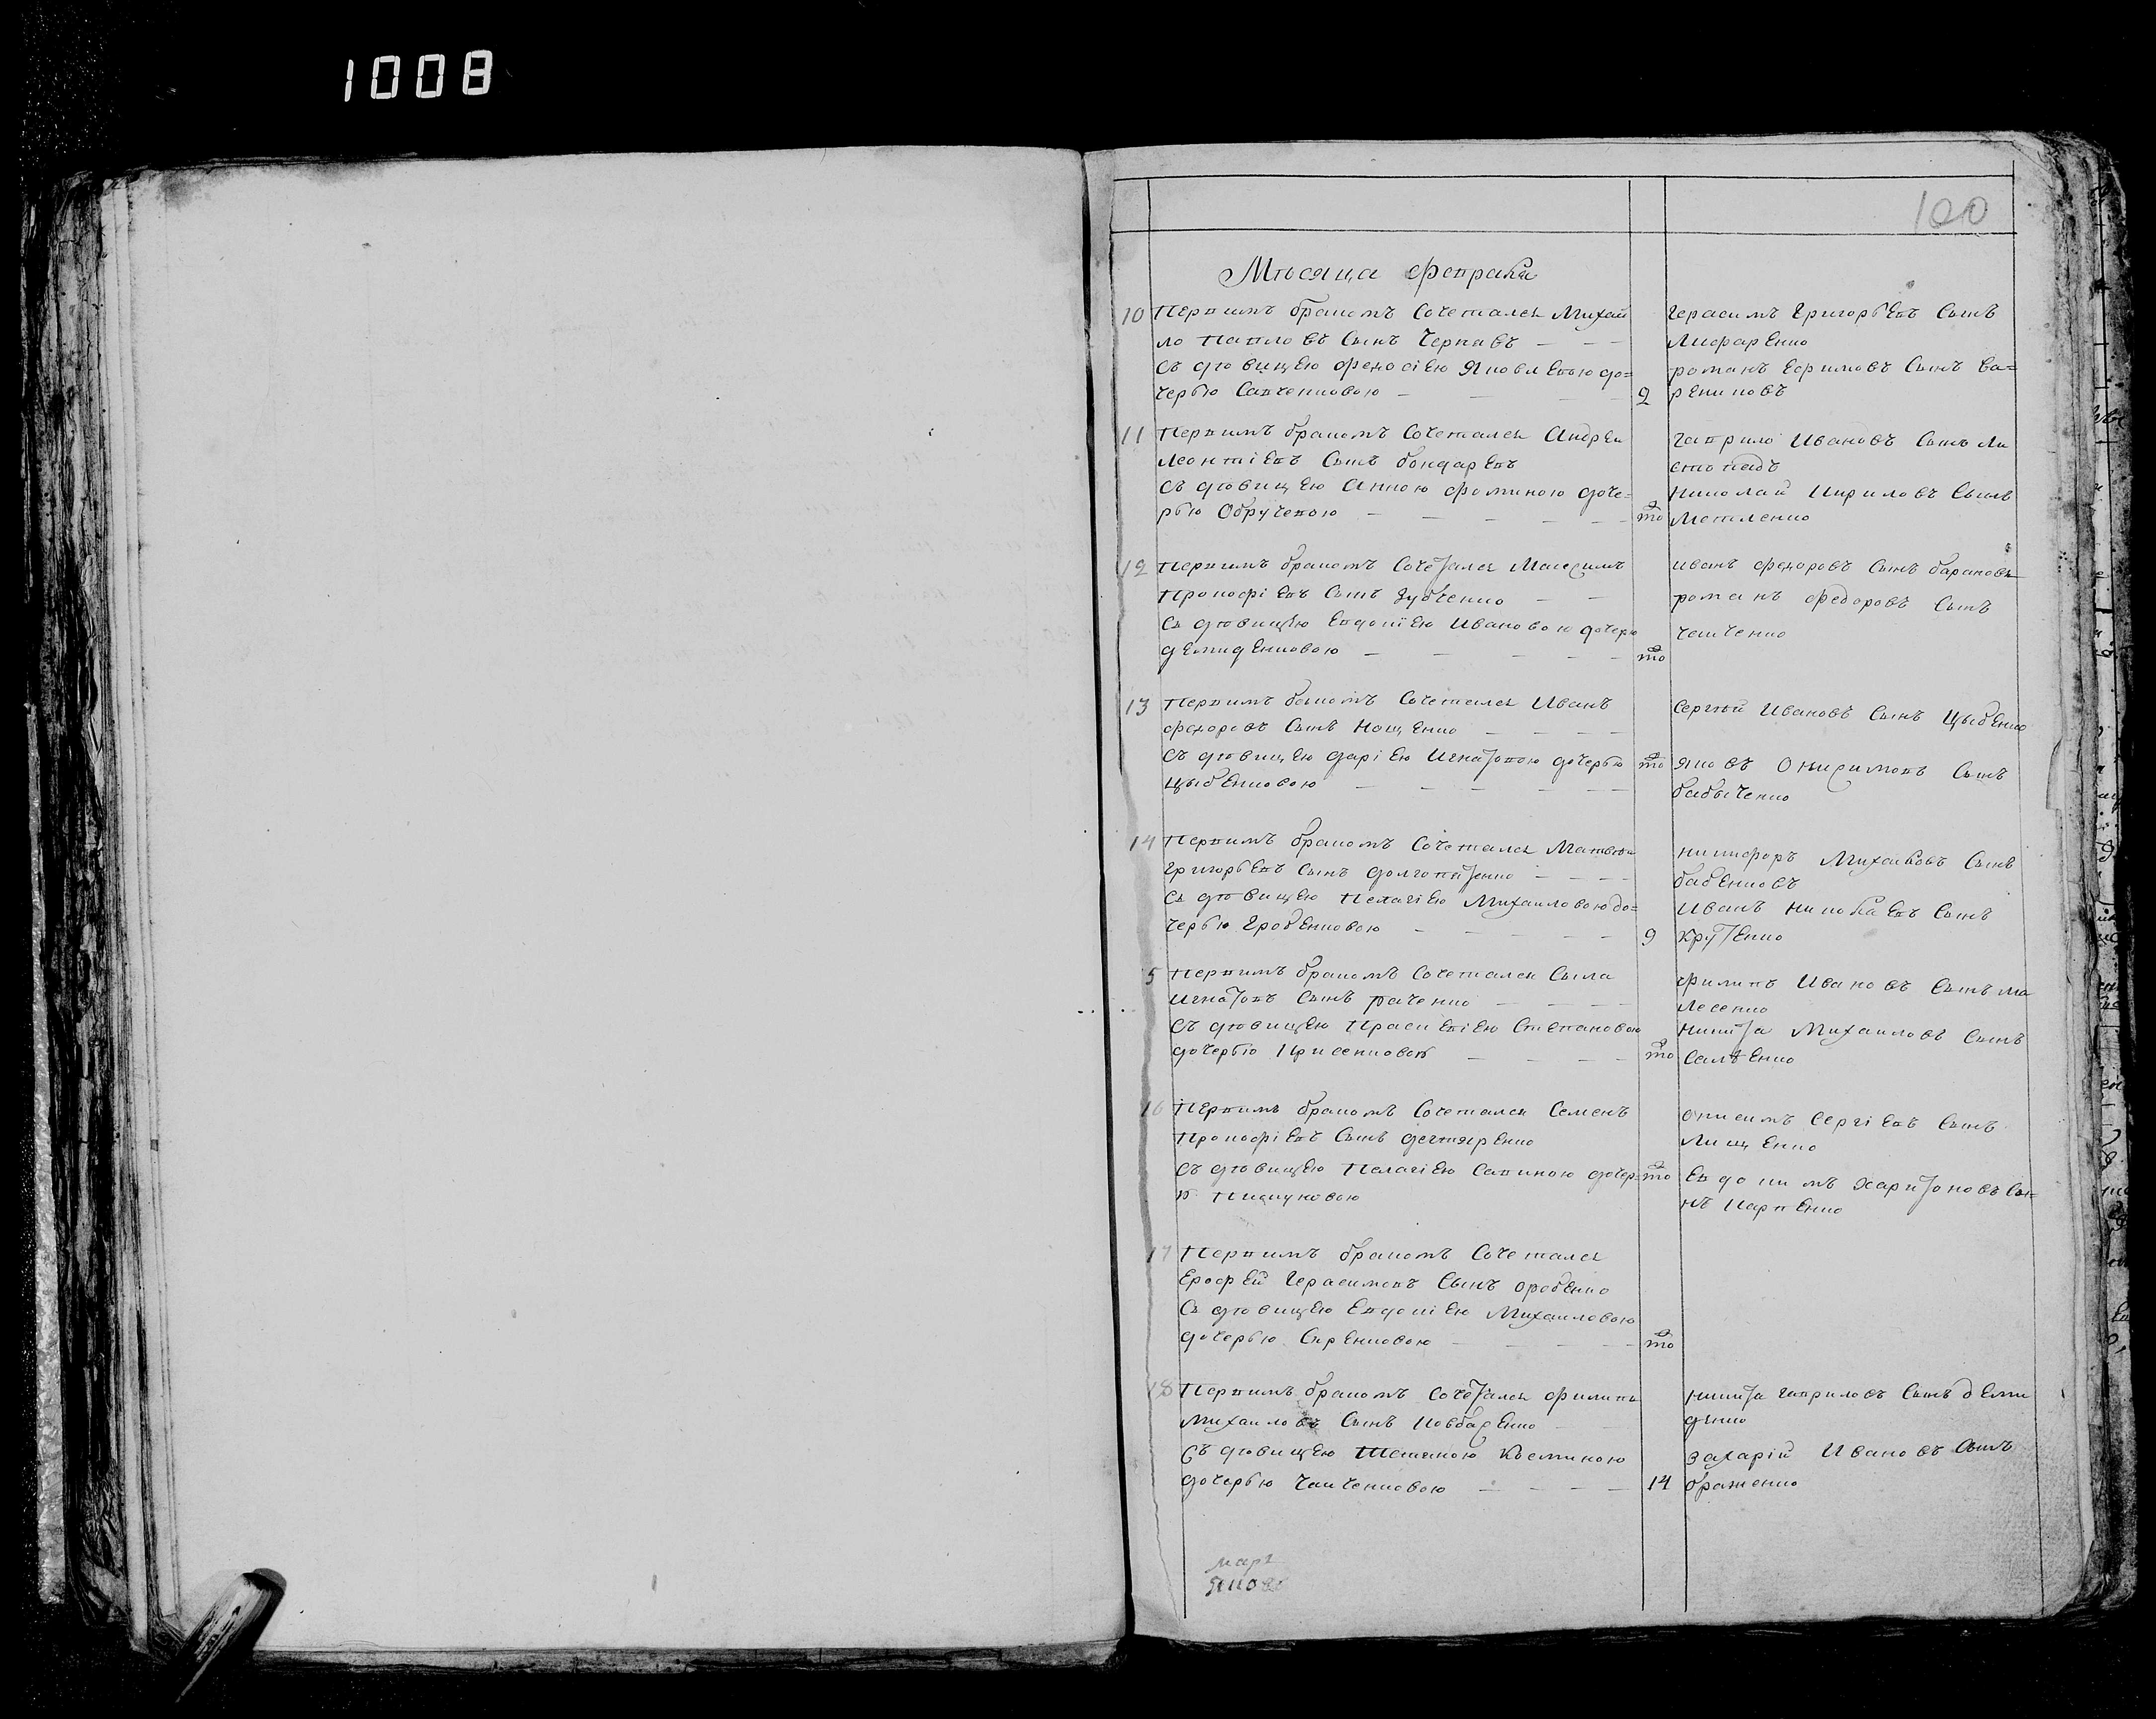 1008
100
Мѣсяца февраля
10 Первимъ бракомъ Сочетался Михай
ло Павловъ Сынъ Чернявъ
Съ дѣвицѣю федосіею Яковлевою до=
черью Савченковою 9
Герасимъ Григорьевъ Сынъ
Лифаренко
романъ Ефимовъ Сынъ Ва=
рениковъ
11 Первимъ бракомъ Сочетался Андреи
Леонтіевъ Сынъ бондаревъ
Съ дѣвицѣю Анною фоминою доче=
рью Обручевою то
Гаврило Ивановъ Сынъ Ли
стопадъ
Николай Кириловъ Сынъ
Метленко
12 Первимъ бракомъ Сочетался Максимъ
Прокофіевъ Сынъ Зубченко
Съ дѣвицѣю Евдокіею Ивановою дочерю
демиденковою то
иванъ федоровъ Сынъ барановъ
романъ федоровъ Сынъ
чайченко
13 Первимъ бракомъ Сочетался Иванъ
федоровъ Сынъ Нощенко
Съ дѣвицѣю даріею Игнатовою дочерью то
Цыбенковою
Сергѣй Ивановъ Сынъ Цыбенко
Яковъ Онисимовъ Сынъ
бабыченко
14 Первимъ бракомъ Сочетался Матвѣи
Григорьевъ Сынъ долгопятенко
Съ дѣвицѣю Пелагіею Михаиловою до=
черью Гробенковою 9
никифоръ Михайловъ Сынъ
бабенковъ
Иванъ николаевъ Сынъ
Крутенко
5 Первимъ бракомъ Сочетался Сыла
Игнатовъ Сынъ раченко
Съ дѣвицѣю Праскевіею Степановою
дочерью Крисенковой то
филипъ Ивановъ Сынъ ма
лесенко
никита Михаиловъ Сынъ
16 Первимъ бракомъ Сочетался Семенъ
Прокофіевъ Сынъ дегтяренко
Съ дѣвицѣю Палагіею Савиною дочер= то
ю Пищуковою
онисимъ Сергіевъ Сынъ
Лищенко
Евдокимъ Харитоновъ Сы=
нъ Карпенко
17 Первимъ бракомъ Сочетался
Ерофей Герасимовъ Сынъ оробенко
Съ дѣвицѣю Евдокіею Михаиловою
дочерью Скренковою то
18 Первимъ бракомъ Сочетался филипъ
Михаиловъ Сынъ Ковбасенко
Съ дѣвицѣю Тетяною Космыною
дочерью Чайченковою 14
никита гавриловъ Сынъ деми
денко
захарій Ивановъ Сынъ
браженко
март